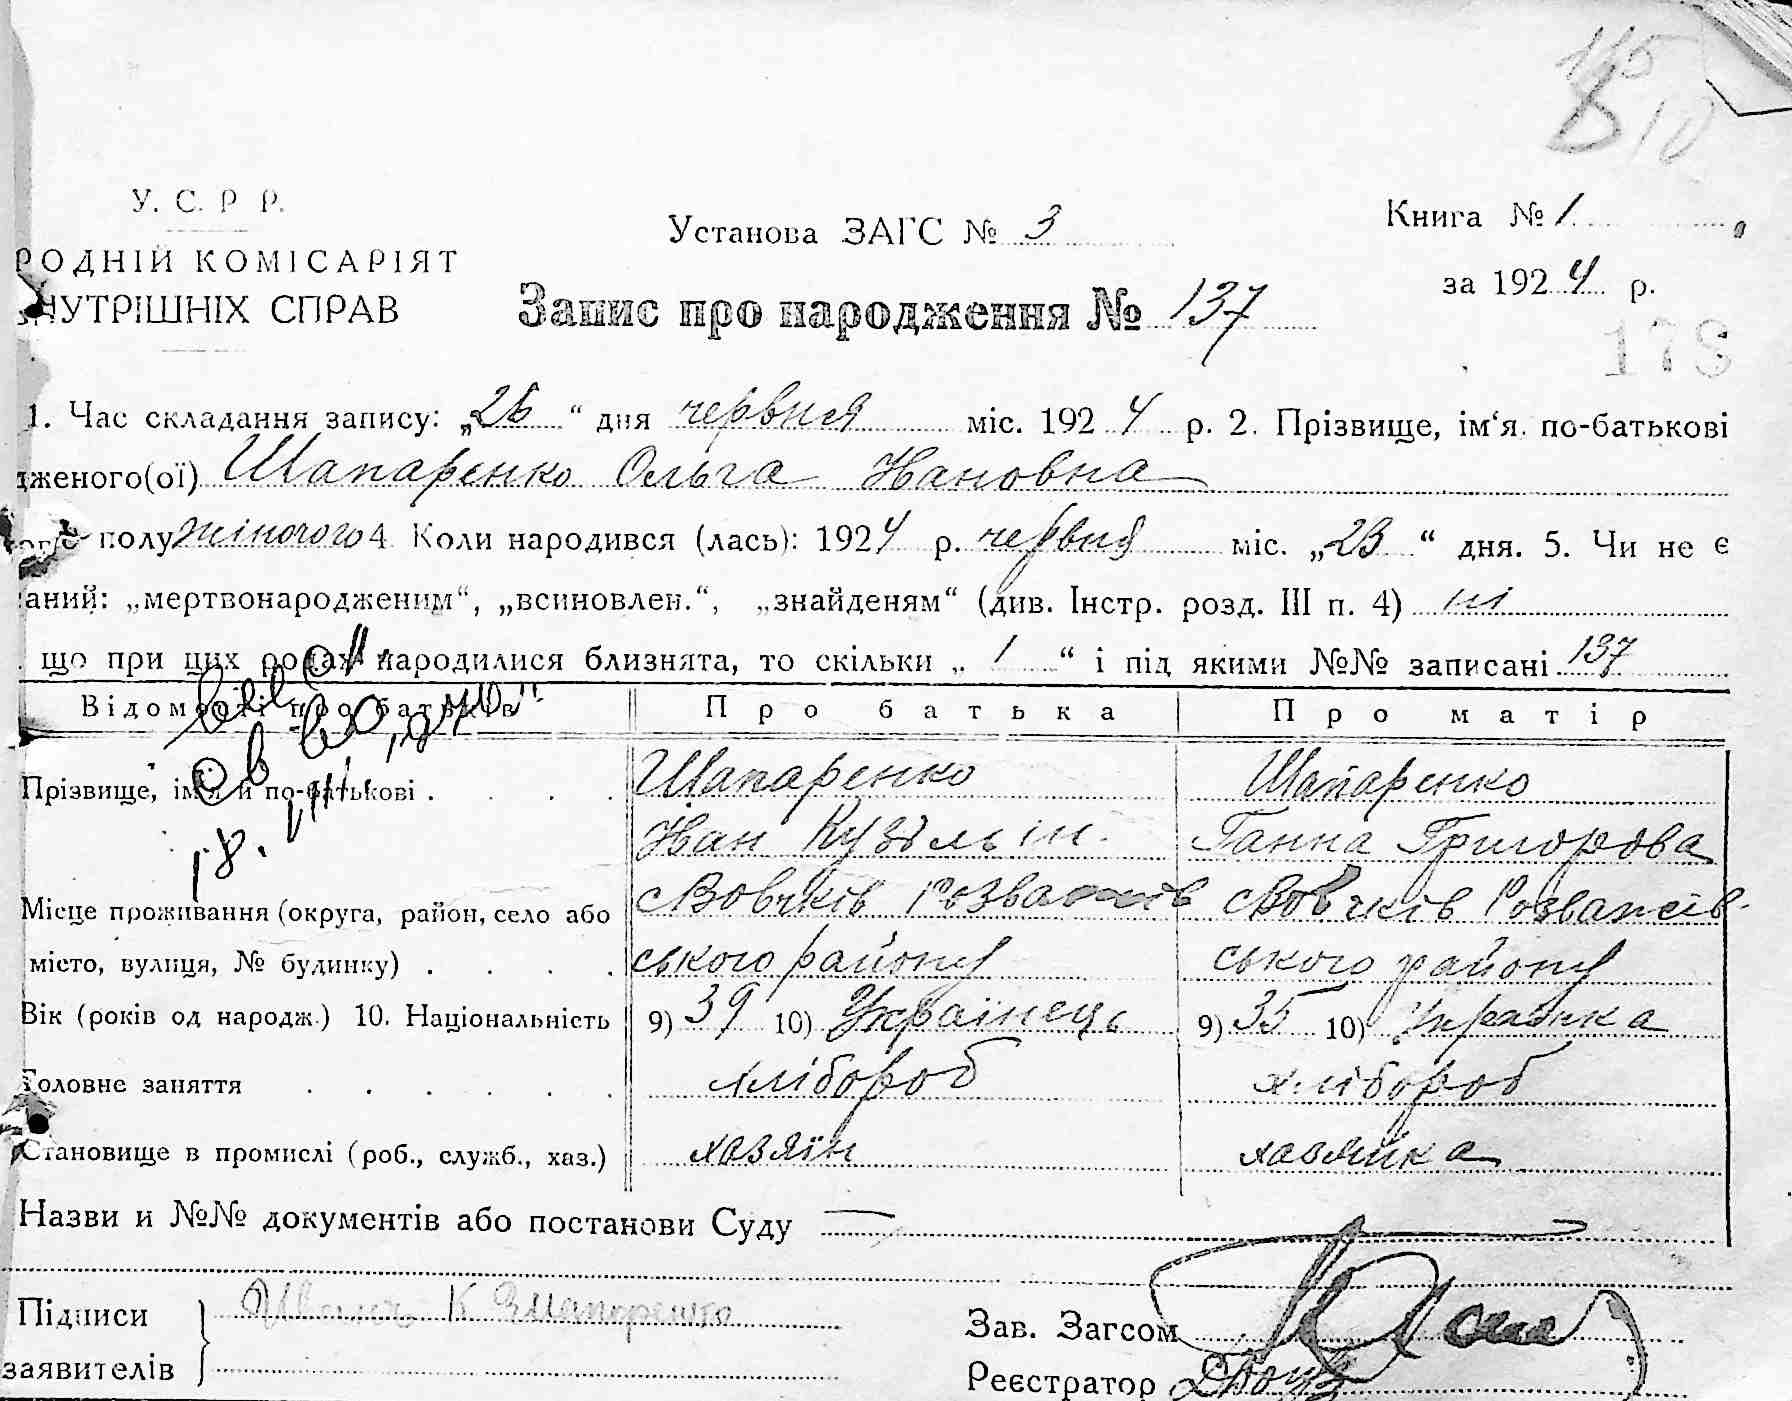 115
10
У. С. Р Р.
РОДНІЙ КОМІСАРІЯТ
НУТРІШНІХ СПРАВ
Установа ЗАГС № 3
Книга № 1
за 1924 р.
Запис про народження № 137
178
1. Час складання запису: „26“ дня червня міс. 1924 р. 2. Прізвище, ім‘я по-батькові
дженого(ої) Шапаренко Ольга Івановна
полу жіночого 4 Коли народився (лась): 1924 р. червня міс. „23“ дня. 5. Чи не є
аний: „мертвонародженим“, „всиновлен.“, „знайденям“ (див. Інстр. розд. III п. 4) ні
що при цих родах народилися близнята, то скільки „1“ і під якими №№ записані 137
Відомості про батьків Про батька Про матір
Прізвище, ім‘я й по-батькові . . . . Шапаренко Шапаренко
Іван Кузьмін. Ганна Григорова
Місце проживання (округа, район, село або с Вовчків Розважів с Вовчків Розважів-
місто, вулиця, № будинку) . . . . ського району ського району
Вік (років од народж.) 10. Національність 9) 39 10) Українець 9) 35 10) Українка
Головне заняття . . . . . . хлібороб хлібороб
Становище в промислі (роб., служб., хаз.) хазяїн хазяйка
Назви и №№ документів або постанови Суду —
Підписи Иванъ К Шапаренко
заявителів
Зав. Загсом
Реєстратор